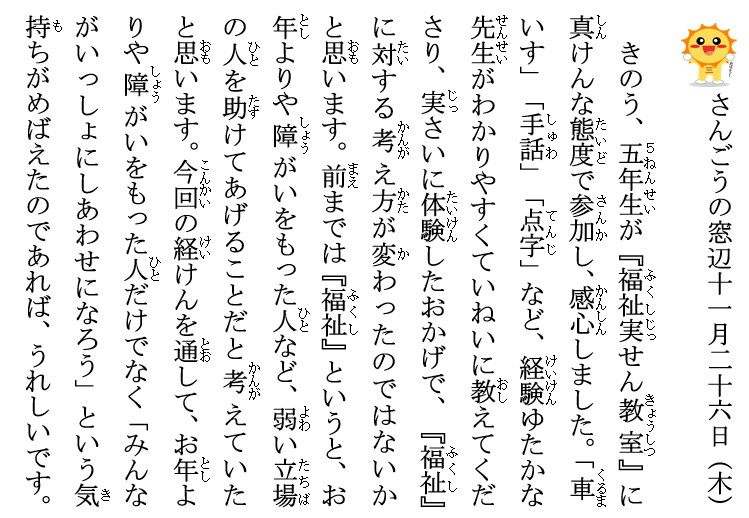 さんごうの窓辺十一月二十六日（木）
きのう、五年生が『福祉実せん教室』に
真けんな態度で参加し、感心しました。「車
いす」「手話」「点字」など、経験ゆたかな
先生がわかりやすくていねいに教えてくだ
さり、実さいに体験したおかげで、『福祉』
に対する考え方が変わったのではないか
と思います。前までは『福祉』というと、お
年よりや障がいをもった人など、弱い立場
の人を助けてあげることだと考えていた
と思います。今回の経けんを通して、お年よ
りや障がいをもった人だけでなく「みんな
がいっしょにしあわせになろう」という気
持ちがめばえたのであれば、うれしいです。